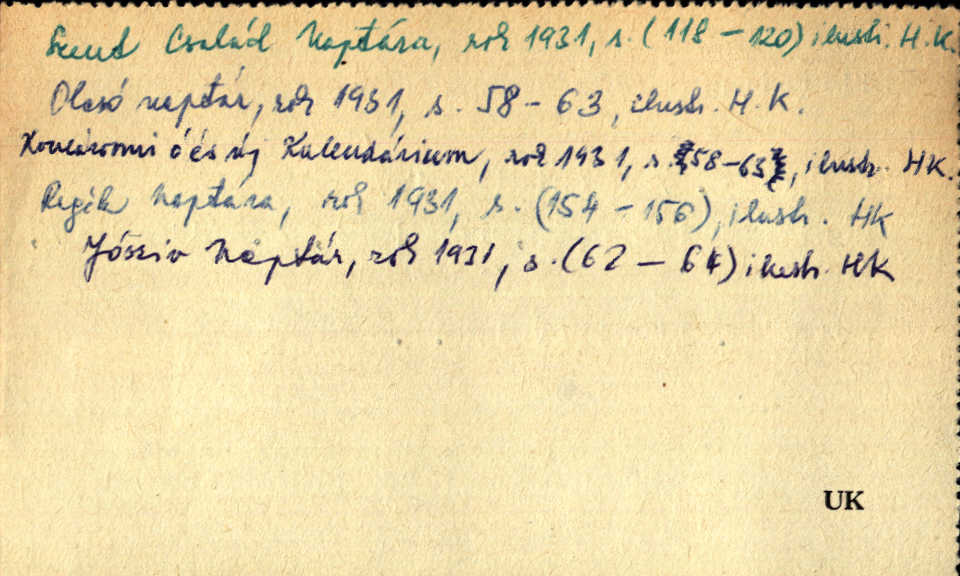 Szent Család Naptára, rok 1931, s. (118 - 120) ilustr. H.K.
Olcsó naptár, rok 1931, s. 58 - 63, ilustr. H.K.
Komáromi ó és új Kalendárium, rok 1931, s. 58-63, ilustr. HK.
Regék Naptára, rok 1931, s. (154 - 156), ilustr. HK
Jószív Naptár, rok 1931, s. (62 - 64) ilustr. HK
UK